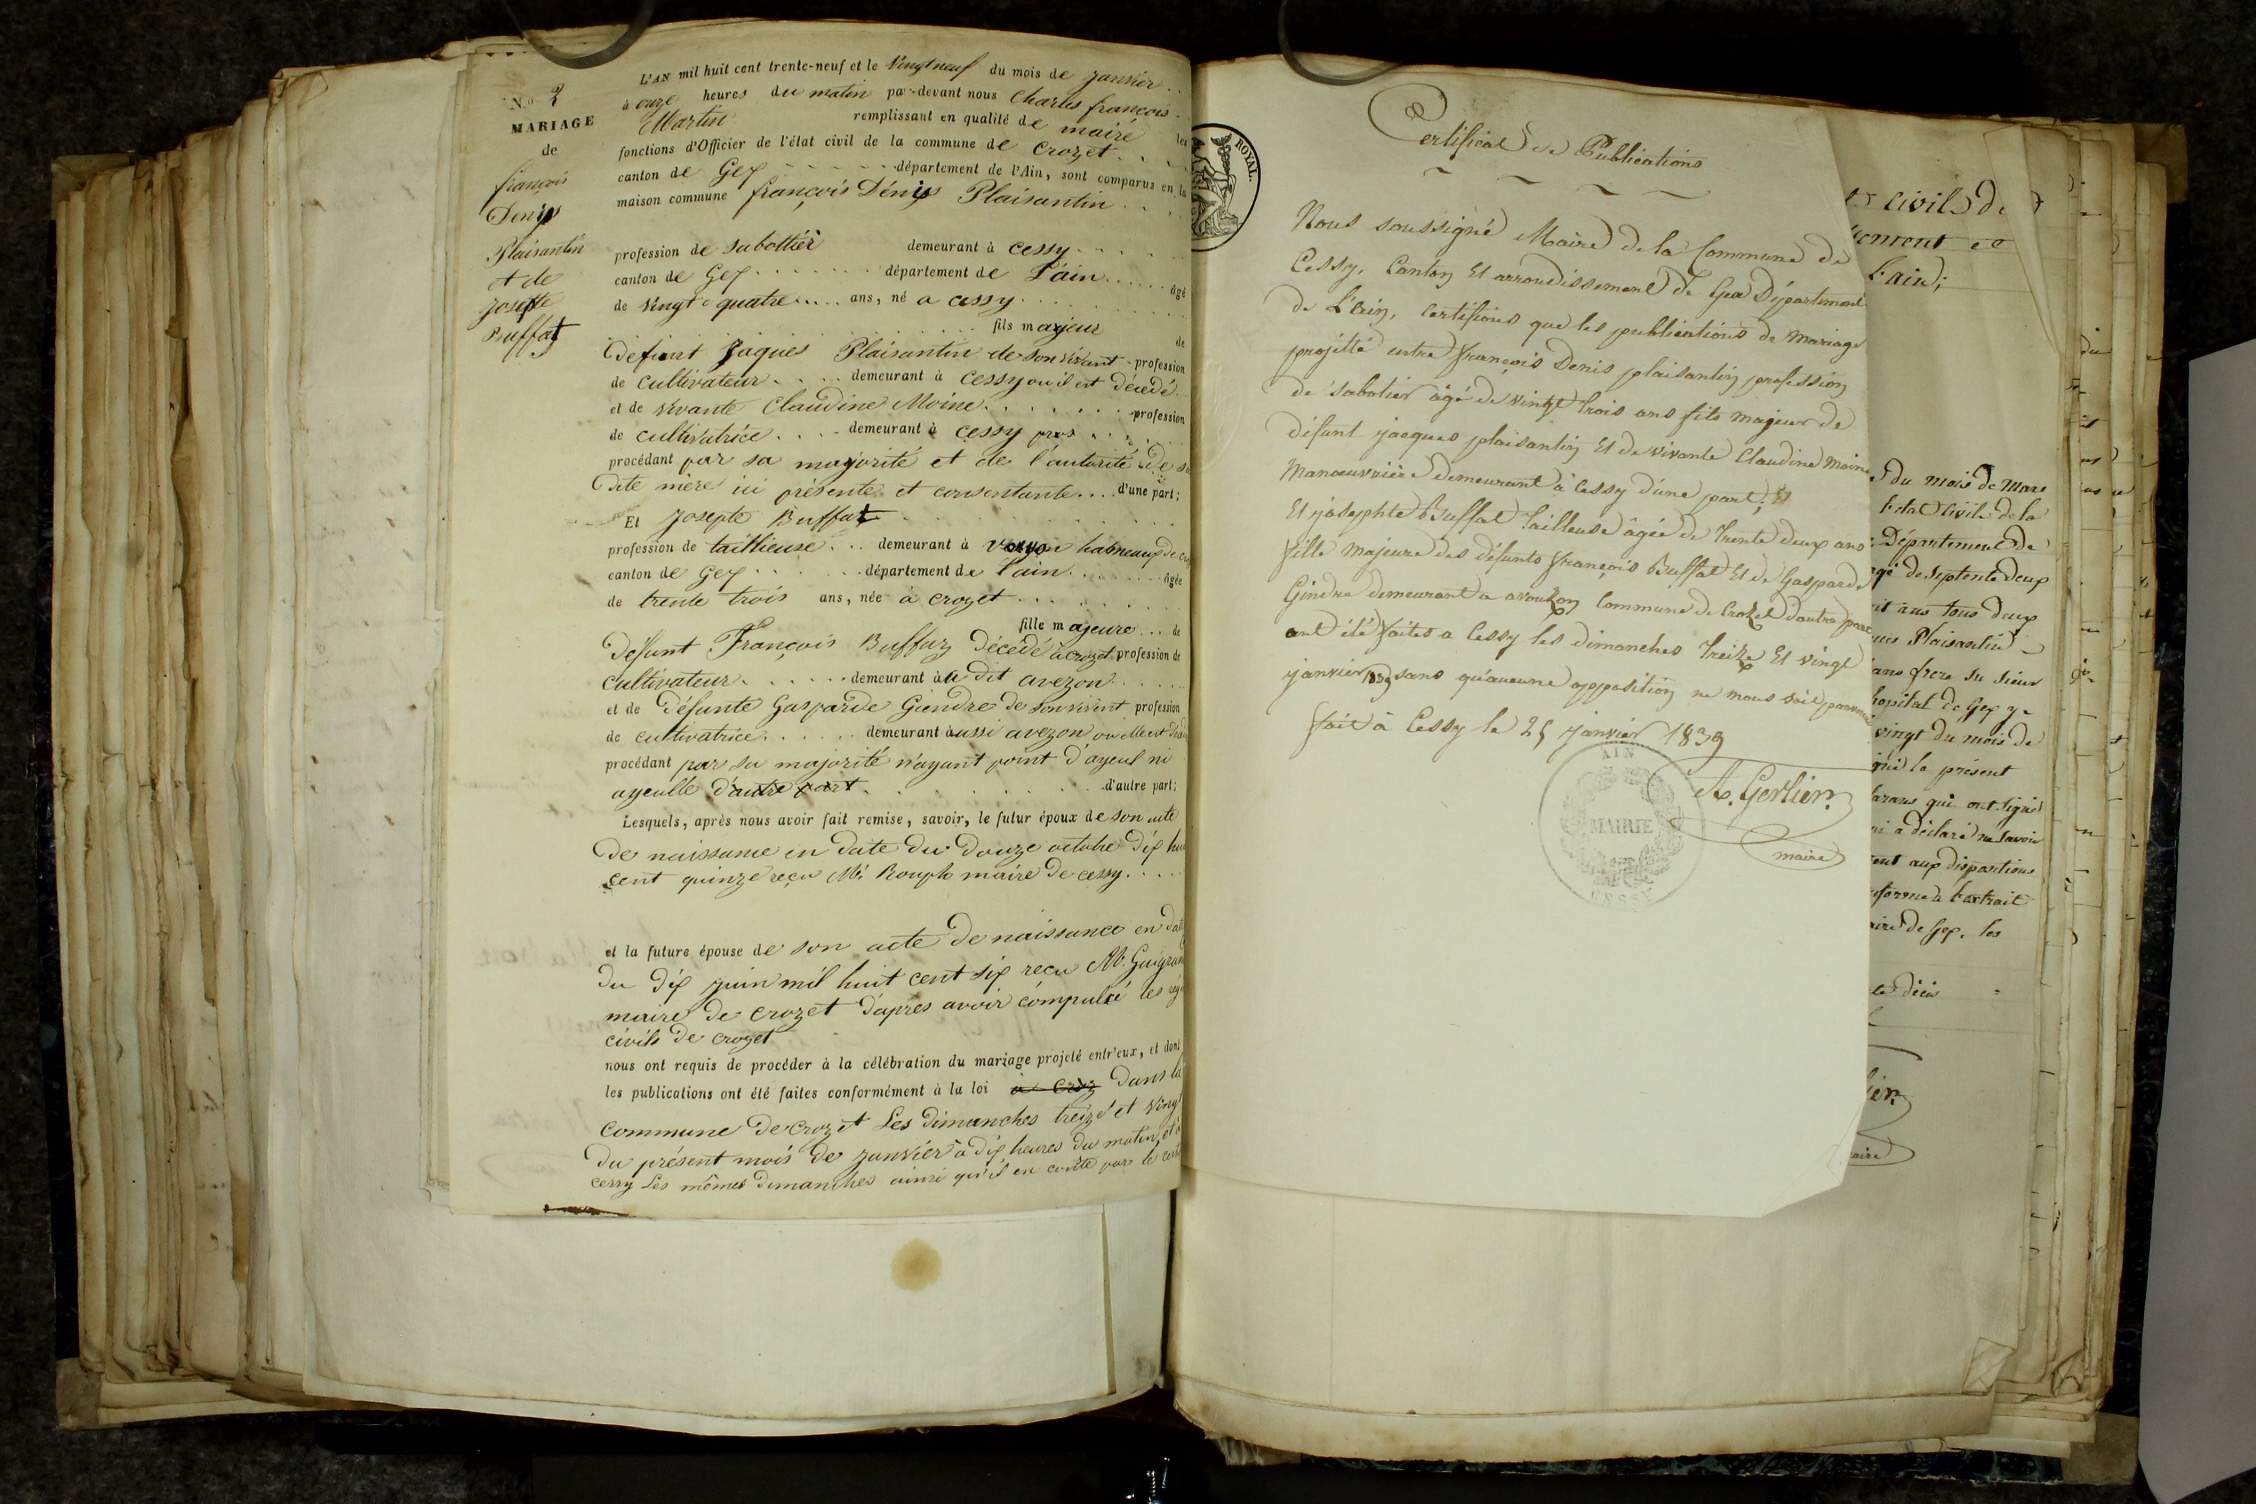 N.o 2
MARIAGE
de
françois
Denis
Plaisantin
et de
Josepte
Buffat
L'AN mil huit cent trente-neuf et le vingt neuf du mois de janvier
à onze heures du matin par-devant nous Charles françois
Martin remplissant en qualité de maire les
fonctions d'Officier de l'état civil de la commune de Crozet
canton de Gex département de l'Ain, sont comparus en la
maison commune françois Dénis Plaisantin
profession de sabottier demeurant à cessy
canton de Gex département de l'ain âgé
de vingt quatre ans, né a cessy
fils majeur de
défunt Jaques Plaisantin de son vivant profession
de cultivateur demeurant à cessy ou il est décédé
et de vivante Claudine Moine profession
de cultivatrice demeurant à cessy
procédant par sa majorité et de l'autorité de sa
dite mère ici présente et consentante d'une part;
Et Josepte Buffat
profession de taillieuse demeurant à hahneaux de
canton de Gex département de l'ain âgée
de trente trois ans, née a crozet
fille majeure de
défunt François Buffaz décédé à crozet profession de
cultivateur demeurant au dit avezon
et de défunte Gasparde Gendre de son vivent profession
de cultivatrice demeurant àussi avezon ou elle est
procédant par sa majorité n'ayant point d'ayeul ni
ayeulle d'autre part d'autre part;
Lesquels, après nous avoir fait remise, savoir, le futur époux de son acte
de naissance en date du douze octobre dix hui
cent quinze reçu Mr. Rouph maire de cessy
et la future épouse de son acte de naissance en dat
du dix juin mil huit cent six recu Mr.
maire de crozet d'après avoir compulcé les
civils de crozet
nous ont requis de procéder à la célébration du mariage projeté entr'eux, et dont
les publications ont été faites conformément à la loi a Croz dans la
commune de crozet Les dimanches treize et vingt
du présent mois de janvier à dix heures du matin et à
cessy Les mêmes dimanches ainsi qu'il en conste par le
ROYAL.
Certificat de Publications
Nous soussigné Maire de la Commune de
Cessy, Canton Et arrondissement de Gex Département
de L'ain, Certifions que les publications de mariage
projetté entre françois Denis plaisantin profession
de sabotier âgé de vingt trois ans fils majeur de
défunt jacques plaisantin Et de vivante Claudine moine
manoeuvrière demeurant à Cessy d'une part; Et
Et josephte Buffat Tailleuse âgée de trente deux ans
fille majeure des défunts françois Buffat Et de Gasparde
Gindre demeurant a avouzon Commune de Crozet d'autre part
ont été faites a Cessy les dimanches treize Et vingt
janvier 1839 sans qu'aucune opposition ne nous soit parvenue
fait à Cessy le 25 janvier 1839
A. Gerlier.
maire
AIN
MAIRIE
CESSY
civils de
l'ain;
du mois de Mars
l'etat civil de la
Département de
agé de septente deux
ans tous deux
Plaisantin
ans frere du sieur
hopital de Gex
vingt du mois de
le présent
qui ont signé
a déclaré ne savoir
aux dispositions
l'extrait
de Gex, les